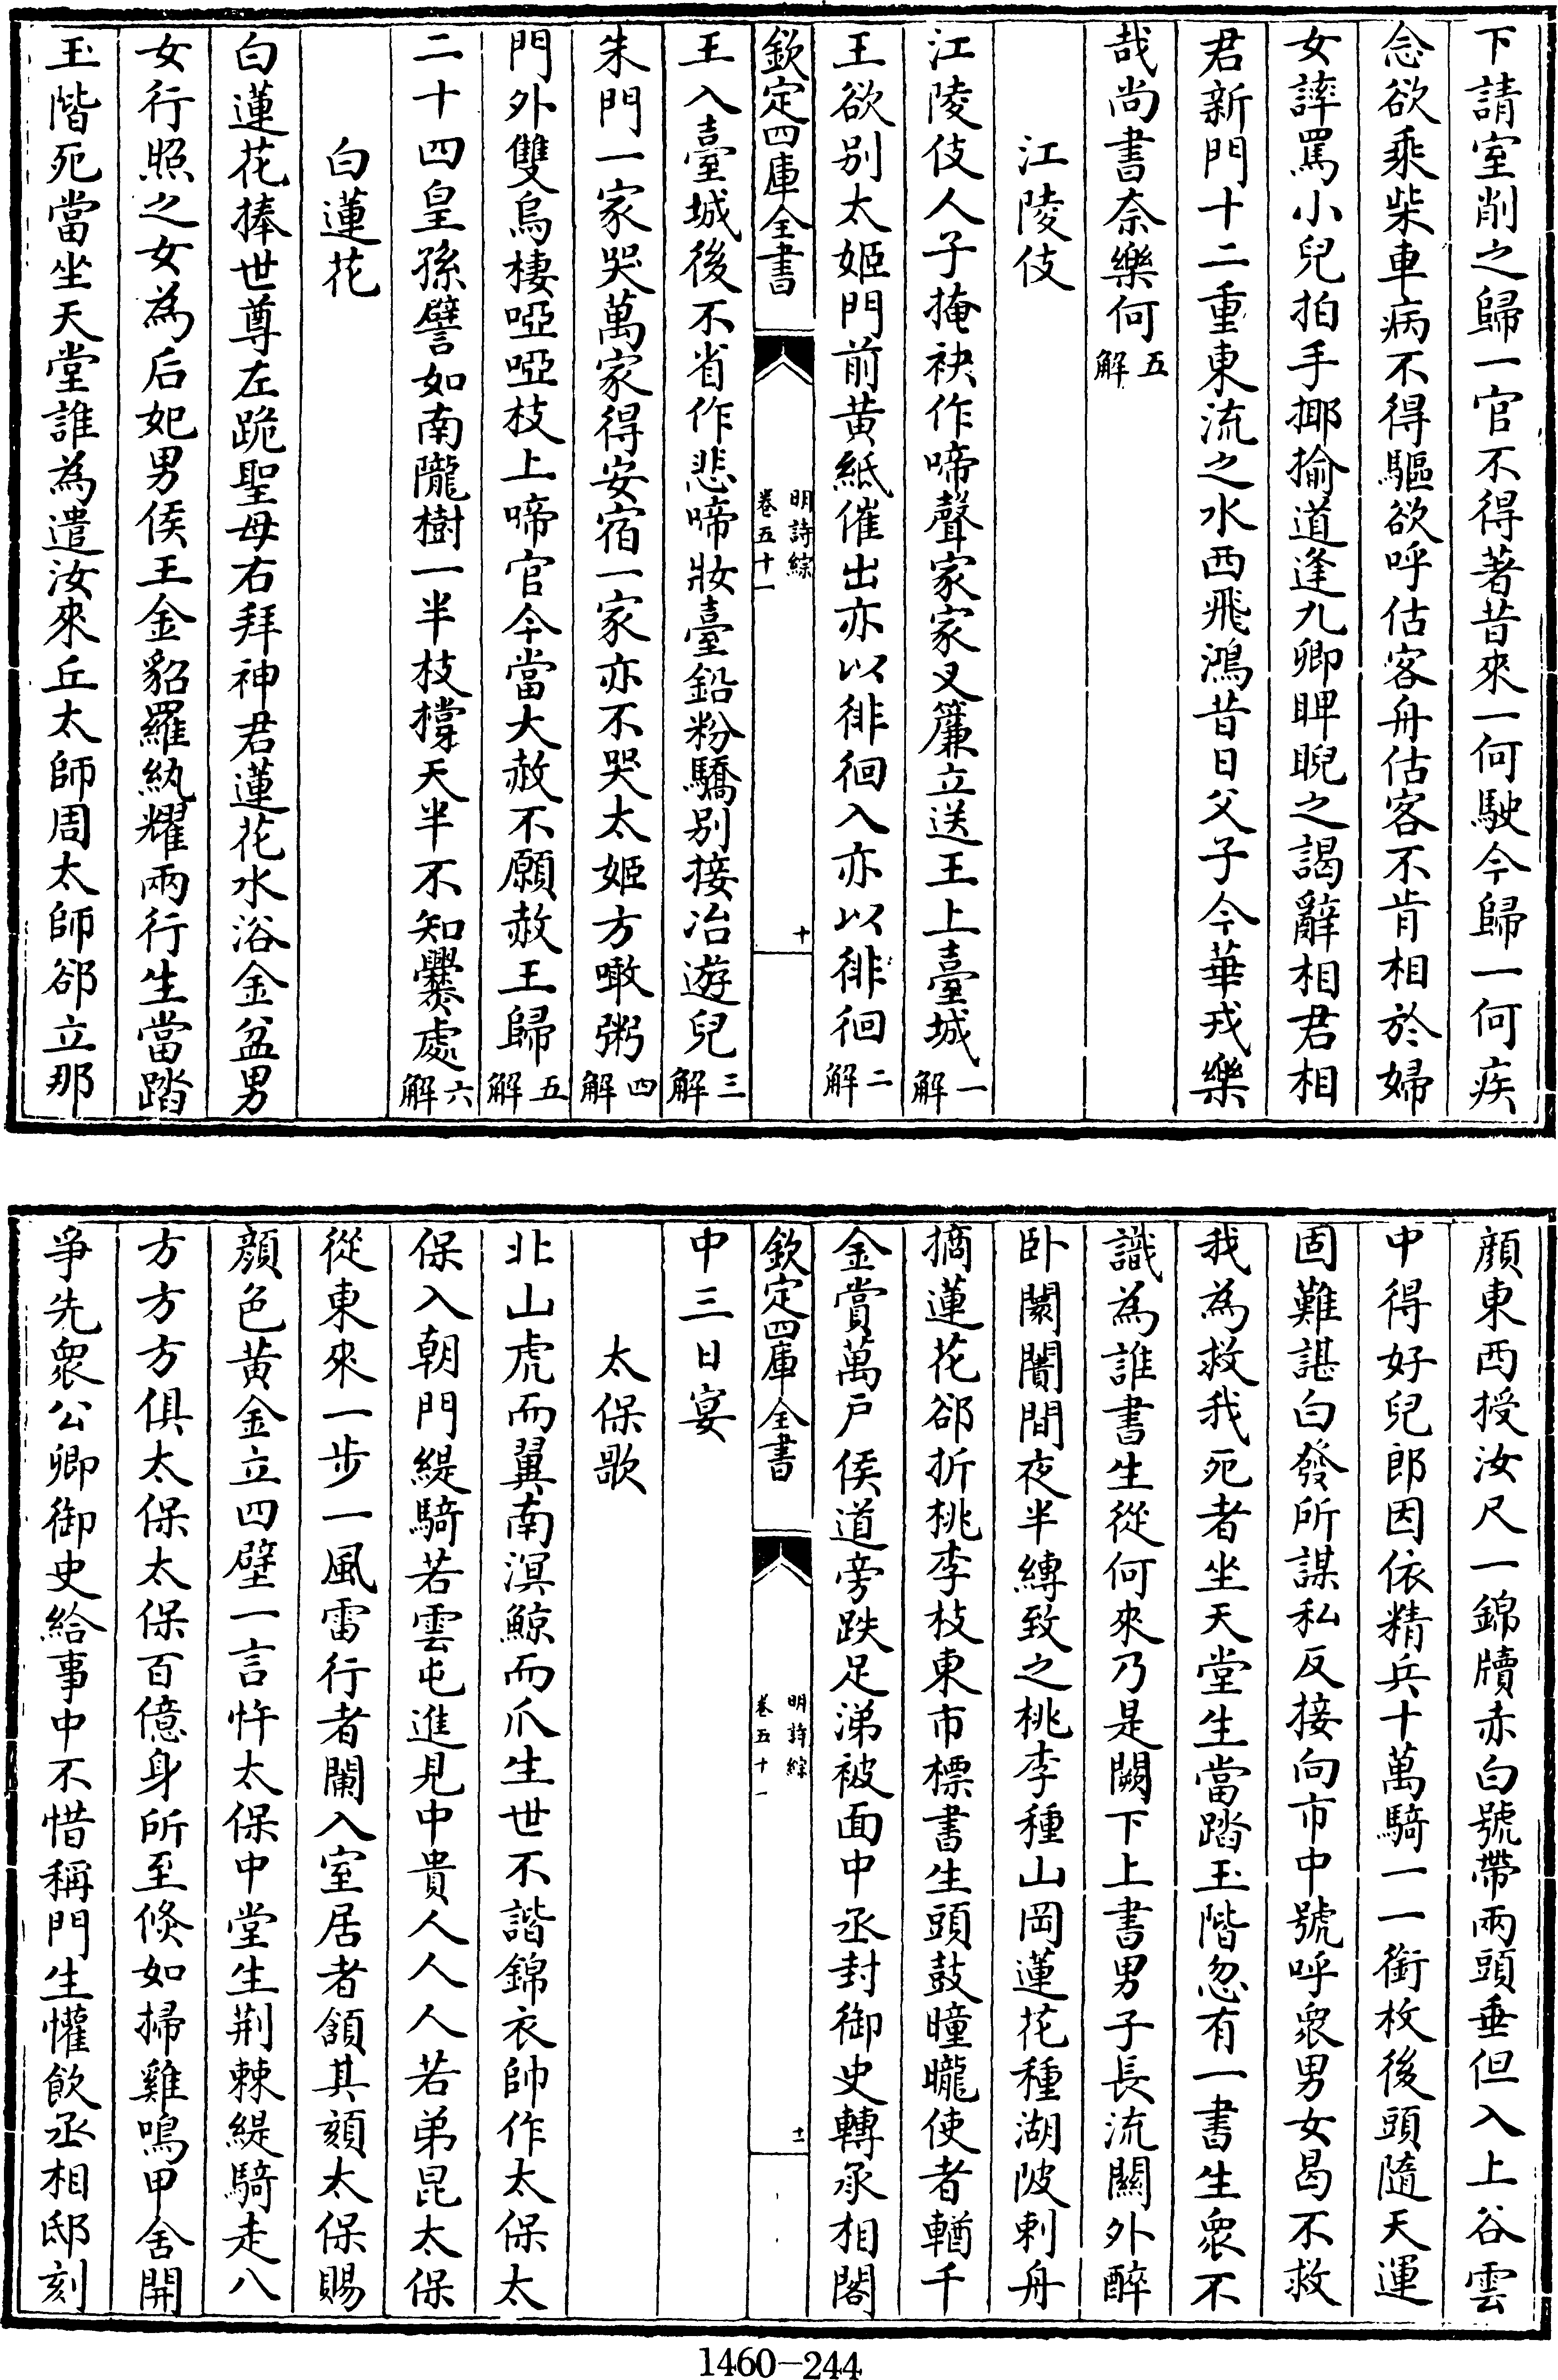 下請室削之歸一官不得著昔來一何駛今歸一何疾
念欲乘柴車病不得驅欲呼估客舟估客不肯相於婦
女誶罵小兒拍手揶揄道逢九卿睥睨之謁辭相君相
君新門十二重東流之水西飛鴻昔日父子今華戎樂
哉尚書奈樂何五解
江陵伎
江陵伎人子掩袂作啼聲家家叉簾立送王上臺城一解
王欲別太姬門前黃紙催出亦以徘徊入亦以徘徊二解
欽定四庫全書
明詩綜
卷五十一
十
王入臺城後不省作悲啼妝臺鉛粉驕別接冶遊兒三解
朱門一家哭萬家得安宿一家亦不哭太姬方噉粥四解
門外雙烏棲啞啞枝上啼官今當大赦不願赦王歸五解
二十四皇孫譬如南隴樹一半枝撐天半不知爨處六解
白蓮花
白蓮花捧世尊左跪聖母右拜神君蓮花水浴金盆男
女行照之女為后妃男侯王金貂羅紈耀兩行生當踏
玉階死當坐天堂誰為遣汝來丘太師周太師郤立那
顏東西授汝尺一錦牘赤白號帶兩頭垂但入上谷雲
中得好兒郎因依精兵十萬騎一一銜枚後頭隨天運
固難諶白發所謀私反接向市中號呼衆男女曷不救
我為救我死者坐天堂生當踏玉階忽有一書生衆不
識為誰書生從何來乃是闕下上書男子長流關外醉
卧闤闠間夜半縛致之桃李種山岡蓮花種湖陂刺舟
摘蓮花郤折桃李枝東市標書生頭鼓曈曨使者輶千
金賞萬戶侯道旁跌足涕被面中丞封御史轉丞相閣
欽定四庫全書
明詩綜
卷五十一
十一
中三日宴
太保歌
北山虎而翼南溟鯨而爪生世不諧錦衣帥作太保太
保入朝門緹騎若雲屯進見中貴人人人若弟昆太保
從東來一步一風雷行者闌入室居者頷其頦太保賜
顏色黃金立四壁一言忤太保中堂生荊棘緹騎走八
方方方俱太保太保百億身所至倏如掃雞鳴甲舍開
爭先衆公卿御史給事中不惜稱門生懽飲丞相邸刻
1460-244